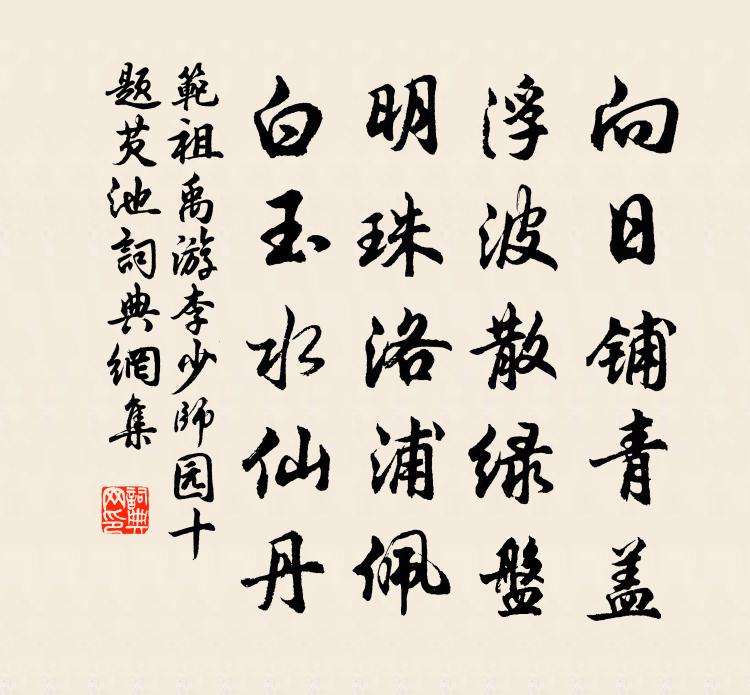 向日铺青盖
浮波散绿盤
明珠洛浦佩
白玉水仙丹
範祖禹游李少師园十
題芡池詞典網集
詞典网印